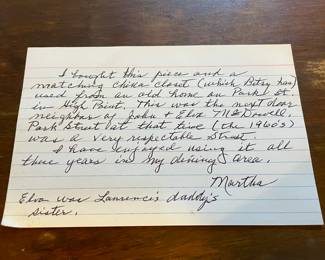 I bought this piece and a
matching china closet (which Betsy has)
used from an old home on Park St
in High Point. This was the next door
neighbor of John & Elva McDowell.
Park Street at that time (the 1960's)
was a very respectable Street.
I have enjoyed using it all
these years in my dining area.
Martha
Elva was Lawrence's daddy's
sister.